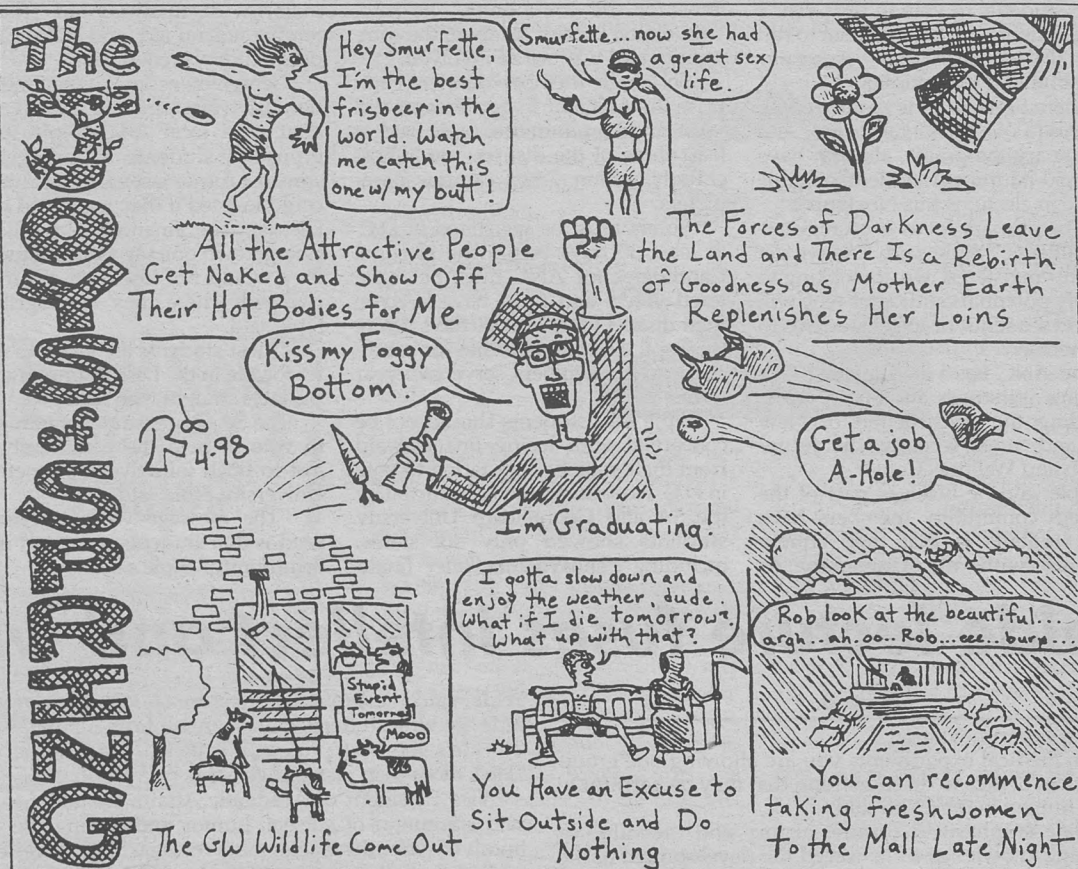 The
JOYS
of
SPRING
Hey Smurfette,
I'm the best
frisbeer in the
world. Watch
me catch this
one w/my butt!
Smurfette...now she had
a great sex
life.
All the Attractive People
Get Naked and Show Off
Their Hot Bodies for Me
The Forces of Darkness Leave
the Land and There Is a Rebirth
of Goodness as Mother Earth
Replenishes Her Loins
Kiss my Foggy
Bottom!
4-98
I'm Graduating!
Get a job
A-Hole!
Stupid
Event
Tomorrow
Mooo
The GW Wildlife Come Out
I gotta slow down and
enjoy the weather, dude.
What if I die tomorrow?
What up with that?
You Have an Excuse to
Sit Outside and Do
Nothing
Rob look at the beautiful...
argh...ah..oo..Rob...eee...burp...
You can recommence
taking freshwomen
to the Mall Late Night